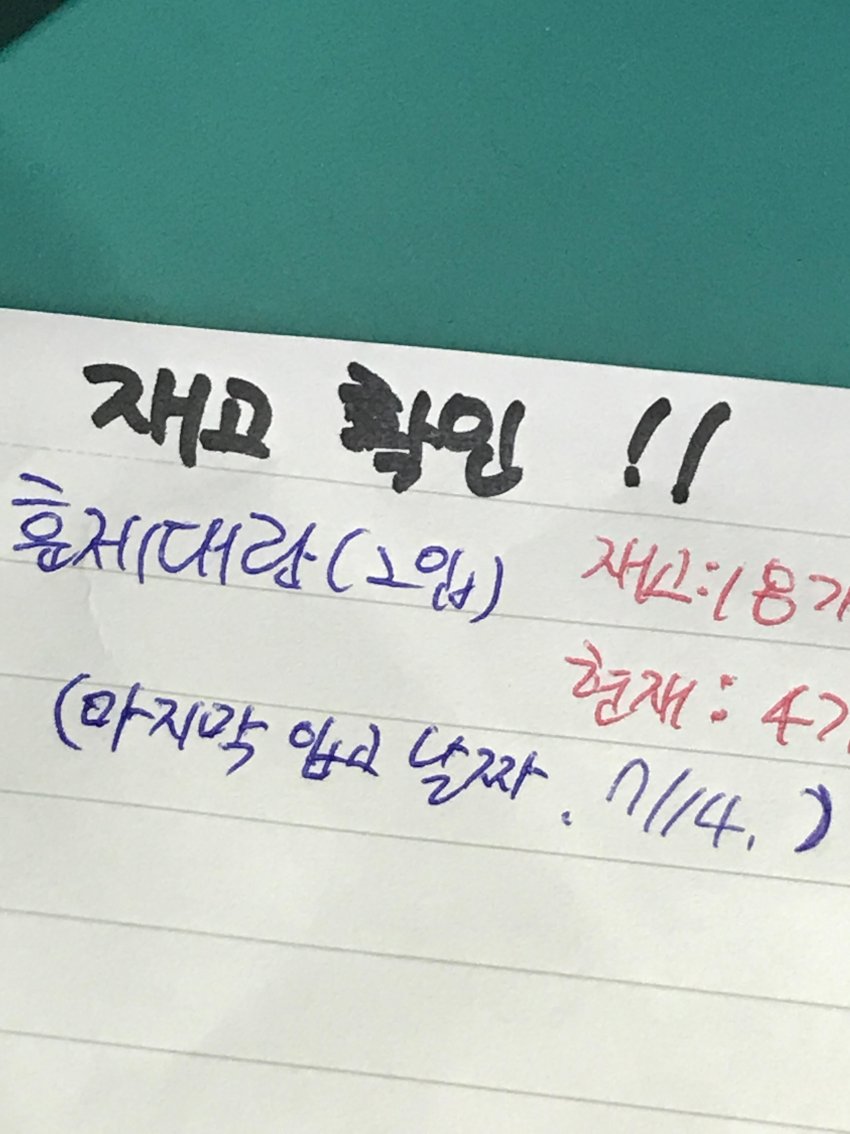 재고 확인 !!
훈제대란(2입) 재고:18개
현재: 4개
(마지막 입고 날짜. 7/14.)